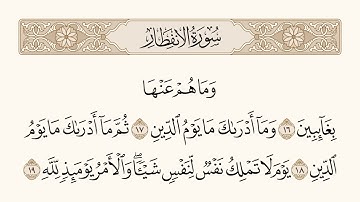 سُورَةُ الِانفِطَارِ
وَمَا هُمْ عَنْهَا
بِغَآئِبِينَ ١٦ وَمَآ أَدْرَىٰكَ مَا يَوْمُ ٱلدِّينِ ١٧ ثُمَّ مَآ أَدْرَىٰكَ مَا يَوْمُ
ٱلدِّينِ ١٨ يَوْمَ لَا تَمْلِكُ نَفْسٌ لِّنَفْسٍ شَيْـًٔا ۖ وَٱلْأَمْرُ يَوْمَئِذٍ لِّلَّهِ ١٩